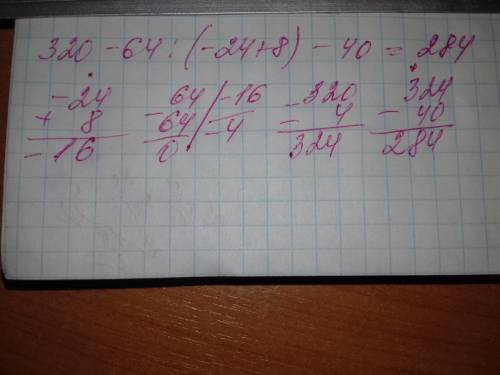 320 - 64 : (-24+8) - 40 = 284
-24 - 64 / -16 - 320 - 324
+ 8 64 / -4 - 4 40
-16 0 324 284